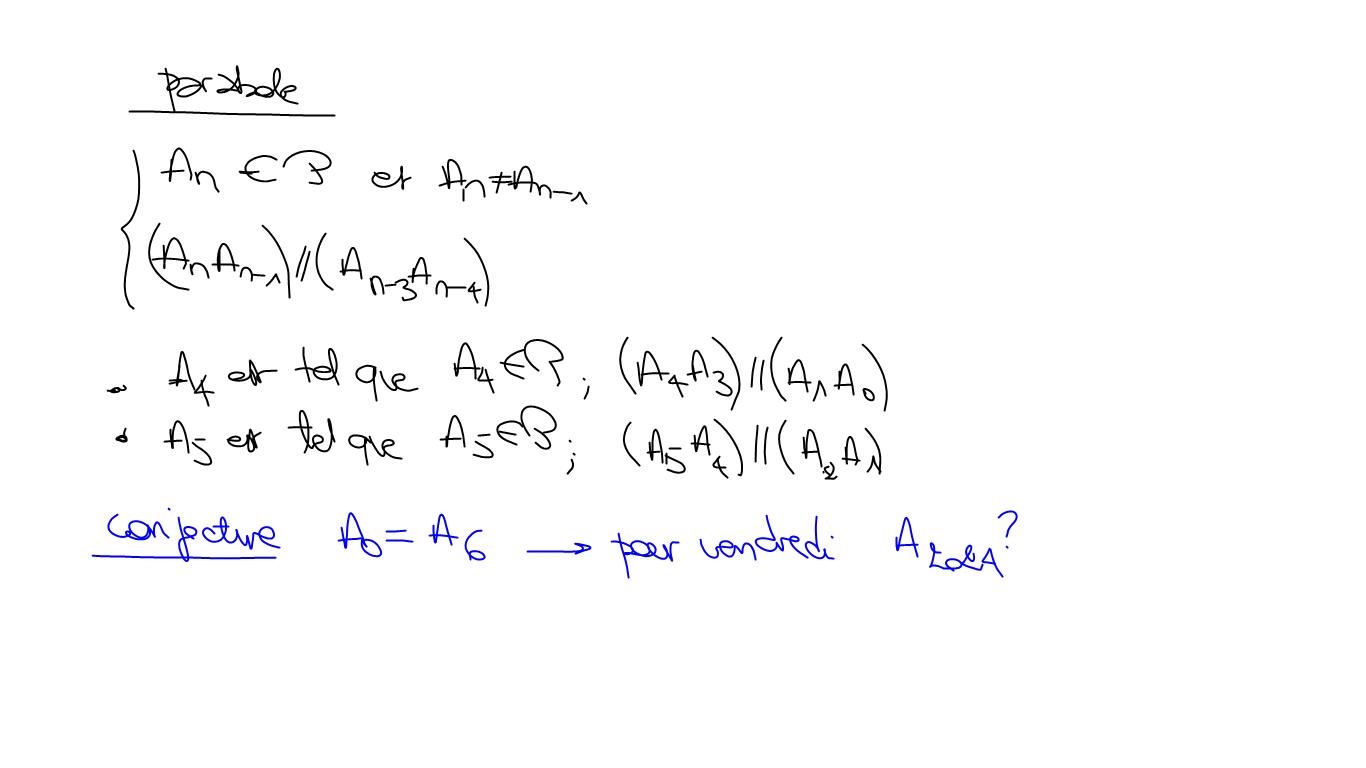 parabole
Aₙ ∈ P et Aₙ ≠ Aₙ₋₁
(AₙAₙ₋₁) // (Aₙ₋₃Aₙ₋₄)
• A₄ est tel que A₄ ∈ P ; (A₄A₃) // (A₁A₀)
• A₅ est tel que A₅ ∈ P ; (A₅A₄) // (A₂A₁)
conjecture A₀ = A₆ → pour vendredi A₂₀₂₁ ?